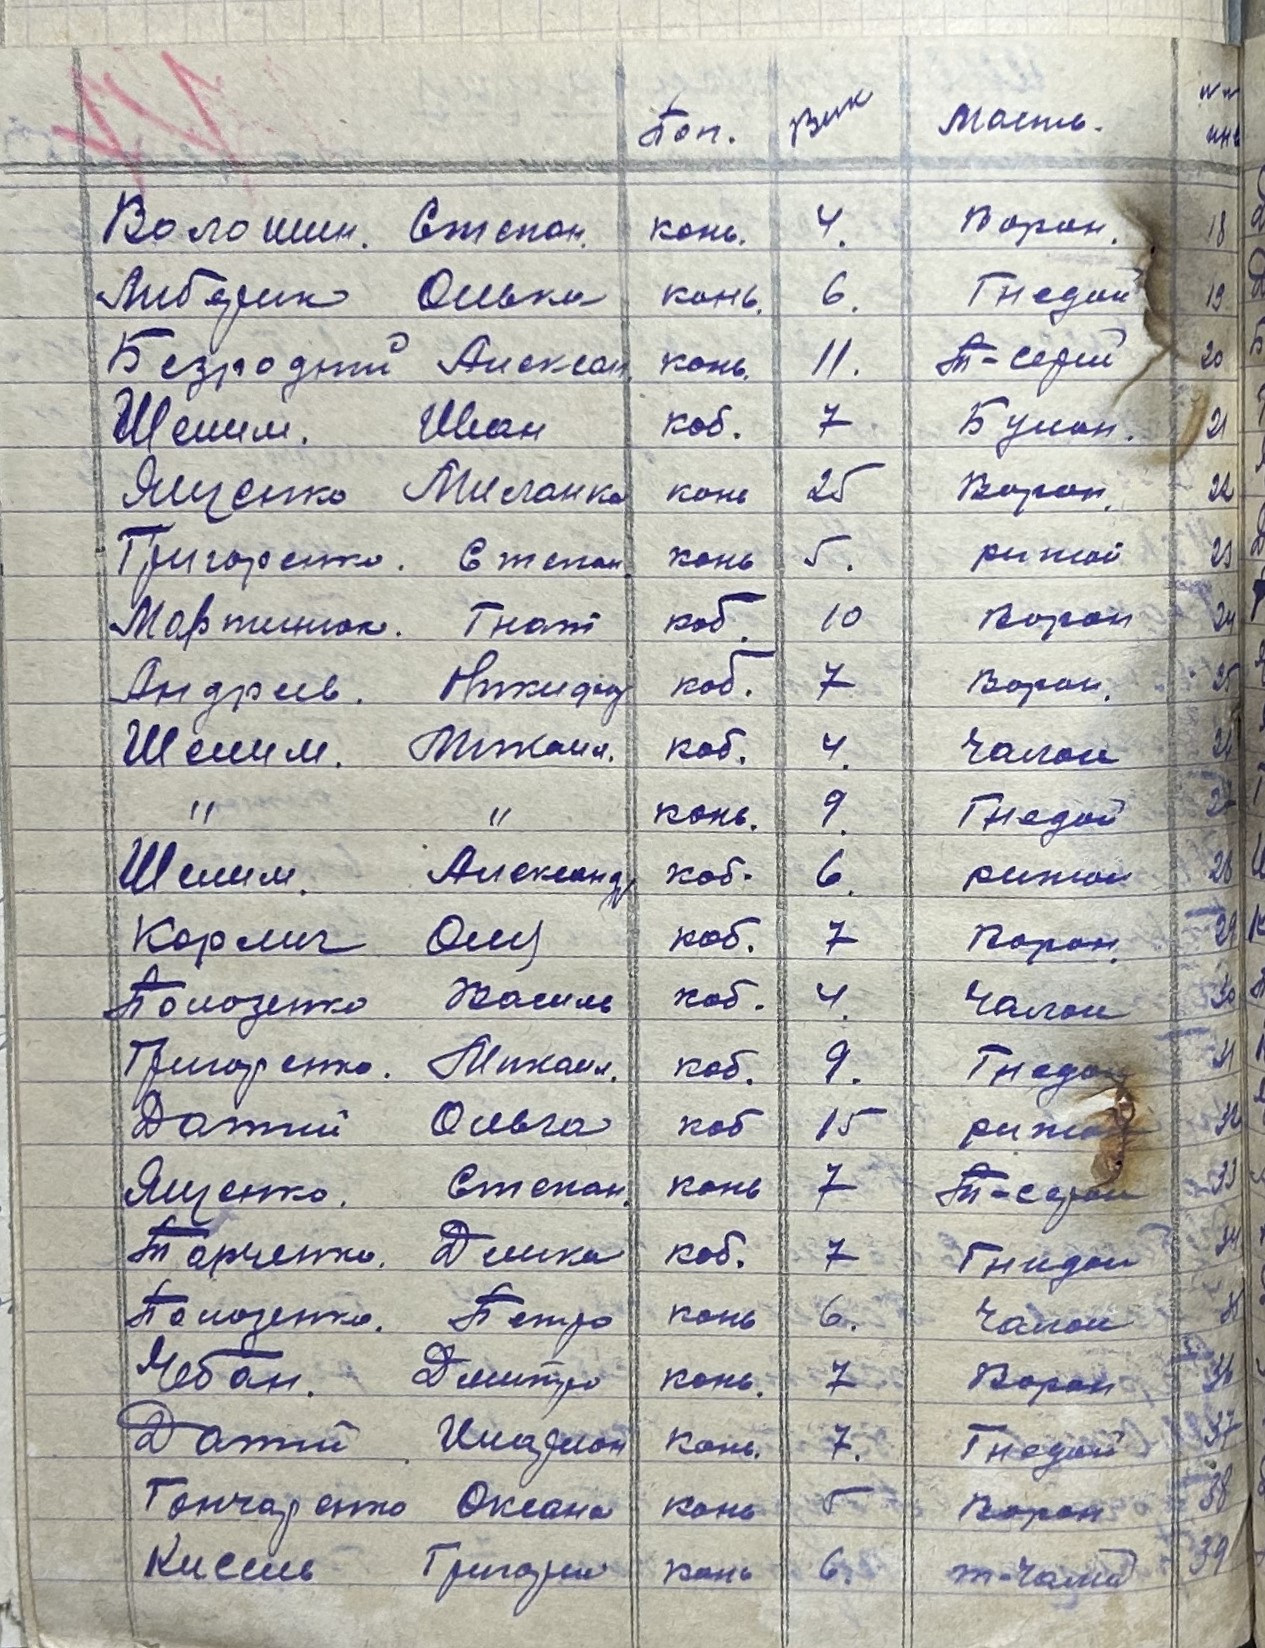 Поп. Вик Масть. №№ инв
Волошин. Степан. конь. 4. Ворон. 18
Либерик Олька конь. 6. Гнедой 19
Безродний Алексан. конь. 11. Т-серий 20
Шелим. Иван коб. 7 Булан. 21
Ященко Миланка конь 25 Ворон. 22
Григоренко. Степан. конь 5. рижой 23
Мартинюк. Гнат коб. 10 Ворон 24
Андреев. Никифор коб. 7 Ворон. 25
Шелим. Михаил. коб. 4. Чалой 26
" " конь. 9. Гнедой 27
Шелим. Александр коб. 6. рижой 28
Кормич коб. 7 Ворон. 29
Полозенко Василь коб. 4. Чалой 30
Григоренко. Михаил. коб. 9. Гнедой 31
Датий Ольга коб 15 рижой 32
Ященко. Степан. конь 7 Т-серой 33
Торченко. Демка коб. 7 Гнидой 34
Полозенко. Петро конь 6. Чалой 35
Чебан. Дмитро конь. 7 Ворон 36
Датий Иларион конь. 7. Гнедой 37
Гончаренко Оксана конь 5 Ворон 38
Кисель Григорий конь 6. т-чалий 39